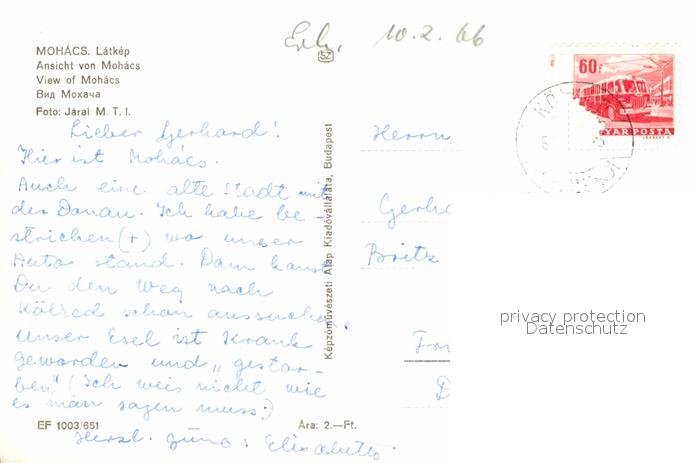 Erh. 10.2.66
MOHÁCS. Látkép
Ansicht von Mohács
View of Mohács
Вид Мохача
Foto: Járai M. T. I.
Lieber Gerhard!
Hier ist Mohács.
Auch eine alte Stadt mit
der Donau. Ich habe be-
strichen (+) wo unser
Auto stand. Dann kannst
Du den Weg nach
schon aussuchen.
Unser Esel ist Krank
geworden und „gestor-
ben" (Ich weis nicht wie
es man sagen muss.)
EF 1003/651
Ára: 2.—Ft.
Herzl.
Képzőművészeti Alap Kiadóvállalata, Budapest
60f
YAR POSTA
Herrn
Gerh
Britz
privacy protection
Datenschutz